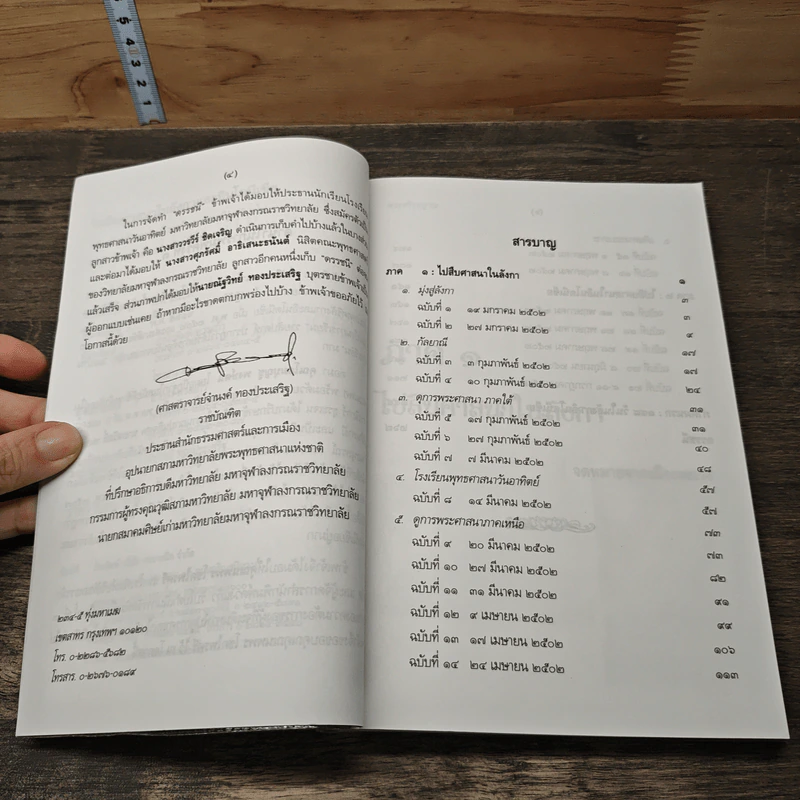 5
4
3
2
1
(๔)
ในการจัดทำ "ดรรชนี" ข้าพเจ้าได้มอบให้ประธานนักเรียนโรงเรียน
พุทธศาสนาวันอาทิตย์ มหาวิทยาลัยมหาจุฬาลงกรณราชวิทยาลัย ซึ่งสมัครตัวเป็น
ลูกสาวข้าพเจ้า คือ นางสาววรวีร์ ชิดเจริญ ดำเนินการเก็บคำไปบ้างแล้วในบาง
และต่อมาได้มอบให้ นางสาวศุภรัศมิ์ อาธิเสนะธนันต์ นิสิตคณะพุทธศาสตร์
ของวิทยาลัยมหาจุฬาลงกรณราชวิทยาลัย ลูกสาวอีกคนหนึ่งเก็บ "ดรรชนี" ต่อ
แล้วเสร็จ ส่วนภาพปกได้มอบให้นายณัฐวิทย์ ทองประเสริฐ บุตรชายข้าพเจ้าเป็น
ผู้ออกแบบเช่นเคย ถ้าหากมีอะไรขาดตกบกพร่องไปบ้าง ข้าพเจ้าขออภัยไว้
โอกาสนี้ด้วย
(ศาสตราจารย์จำนงค์ ทองประเสริฐ)
ราชบัณฑิต
ประธานสำนักธรรมศาสตร์และการเมือง
อุปนายกสภามหาวิทยาลัยพระพุทธศาสนาแห่งชาติ
ที่ปรึกษาอธิการบดีมหาวิทยาลัย มหาจุฬาลงกรณราชวิทยาลัย
กรรมการผู้ทรงคุณวุฒิสภามหาวิทยาลัย มหาจุฬาลงกรณราชวิทยาลัย
นายกสมาคมศิษย์เก่ามหาวิทยาลัยมหาจุฬาลงกรณราชวิทยาลัย
๒๓๔-๕ ทุ่งมหาเมฆ
เขตสาทร กรุงเทพฯ ๑๐๑๒๐
โทร. ๐-๒๒๘๖-๕๖๘๒
โทรสาร. ๐-๒๖๗๖-๐๑๘๔
สารบาญ
ภาค ๑ : ไปสืบศาสนาในลังกา ๑
๑. มุ่งสู่ลังกา ๓
ฉบับที่ ๑ ๑๙ มกราคม ๒๕๐๒ ๓
ฉบับที่ ๒ ๒๗ มกราคม ๒๕๐๒ ๙
๒. กัลยาณี ๑๗
ฉบับที่ ๓ ๓ กุมภาพันธ์ ๒๕๐๒ ๑๗
ฉบับที่ ๔ ๑๐ กุมภาพันธ์ ๒๕๐๒ ๒๔
๓. ดูการพระศาสนา ภาคใต้ ๓๑
ฉบับที่ ๕ ๑๗ กุมภาพันธ์ ๒๕๐๒ ๓๑
ฉบับที่ ๖ ๒๗ กุมภาพันธ์ ๒๕๐๒ ๔๐
ฉบับที่ ๗ ๗ มีนาคม ๒๕๐๒ ๔๘
๔. โรงเรียนพุทธศาสนาวันอาทิตย์ ๕๗
ฉบับที่ ๘ ๑๔ มีนาคม ๒๕๐๒ ๕๗
๕. ดูการพระศาสนาภาคเหนือ ๗๓
ฉบับที่ ๙ ๒๐ มีนาคม ๒๕๐๒ ๗๓
ฉบับที่ ๑๐ ๒๗ มีนาคม ๒๕๐๒ ๘๒
ฉบับที่ ๑๑ ๓๑ มีนาคม ๒๕๐๒ ๙๑
ฉบับที่ ๑๒ ๙ เมษายน ๒๕๐๒ ๙๙
ฉบับที่ ๑๓ ๑๗ เมษายน ๒๕๐๒ ๑๐๖
ฉบับที่ ๑๔ ๒๔ เมษายน ๒๕๐๒ ๑๑๓